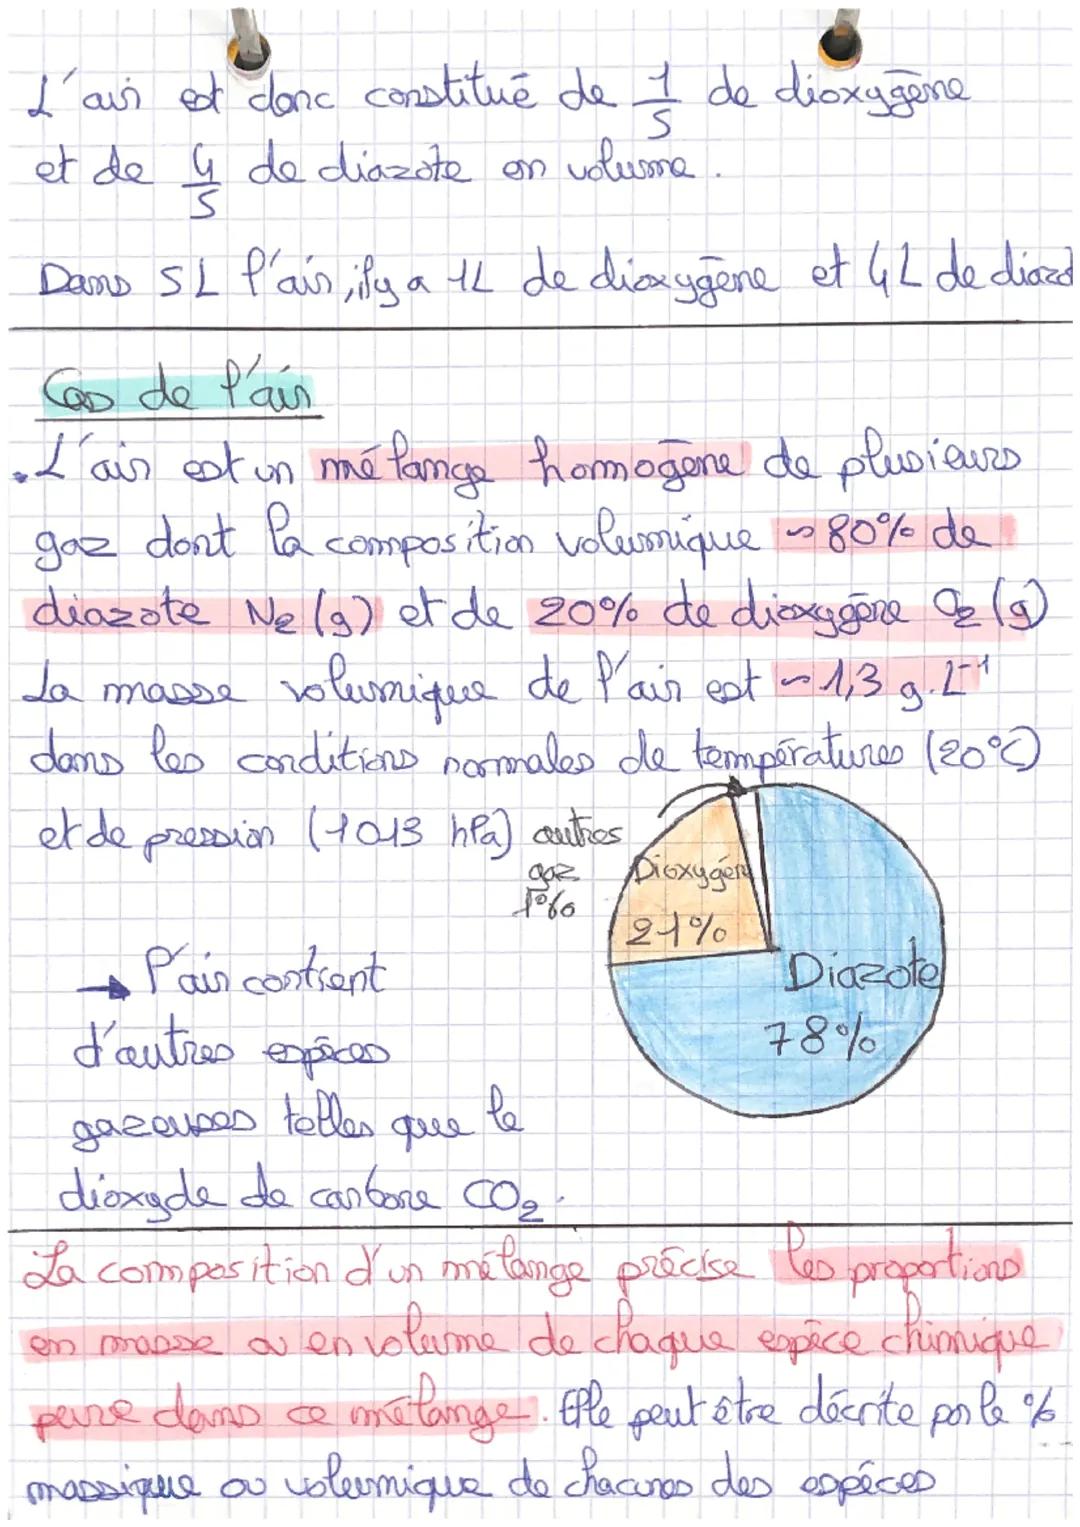 L'air est donc constitué de 1/5 de dioxygène
et de 4/5 de diazote en volume.
Dans 5L l'air, il y a 1L de dioxygène et 4L de diazo
Cas de l'air
. L'air est un mélange homogène de plusieurs
gaz dont la composition volumique ~ 80% de
diazote N₂ (g) et de 20% de dioxygène O₂ (g)
La masse volumique de l'air est ~ 1,3 g.L⁻¹
dans les conditions normales de températures (20°C)
et de pression (1013 hPa)
autres
gaz
1%
Dioxygène
21%
Diazote
78%
→ l'air contient
d'autres espèces
gazeuses telles que le
dioxyde de carbone CO₂.
La composition d'un mélange précise les proportions
en masse ou en volume de chaque espèce chimique
pure dans ce mélange. Elle peut être décrite par le %
massique ou volumique de chacunes des espèces